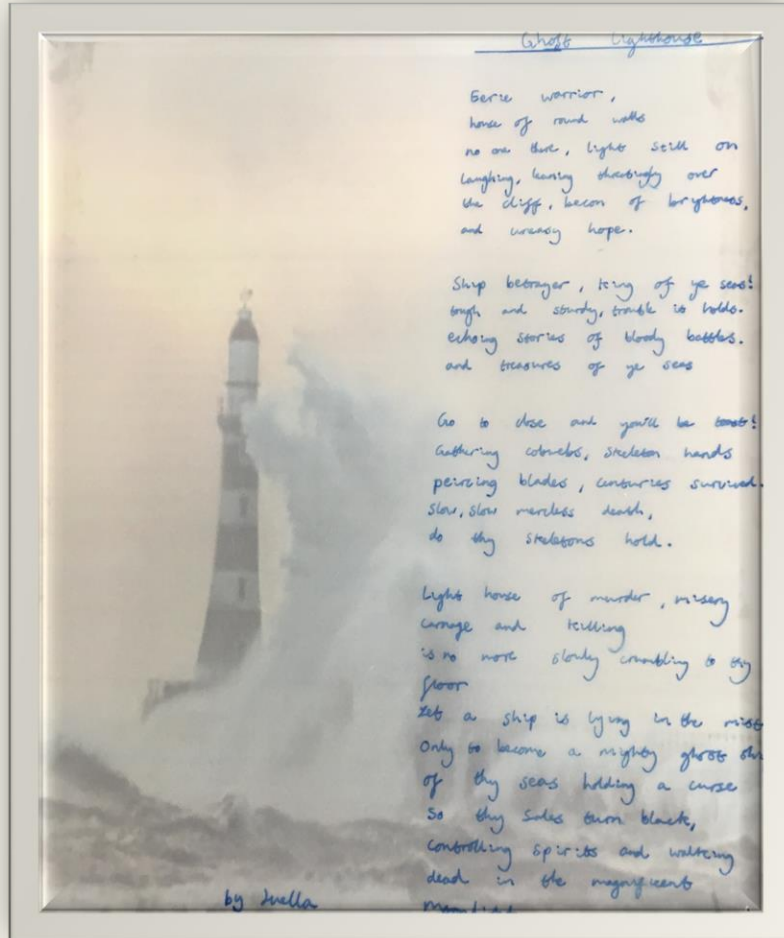 Ghost Lighthouse
Eerie warrior,
house of round walls
no one there, light still on
laughing, leaning over
the cliff, becon of brightness,
and uneasy hope.
Ship betrayer, King of ye seas!
tough and sturdy, trouble it holds.
echoing stories of bloody battles.
and treasures of ye seas
Go to close and you'll be toast!
Gathering cobwebs, skeleton hands
peircing blades, centuries survived.
Slow, slow merciless death,
do thy skeletons hold.
Light house of murder, misery
carnage and killing
is no more slowly crumbling to thy
floor
Yet a ship is lying in the mist
Only to become a mighty ghost
of thy seas holding a curse
So thy sales turn black,
controlling spirits and walking
dead in the magnificent
by Luella